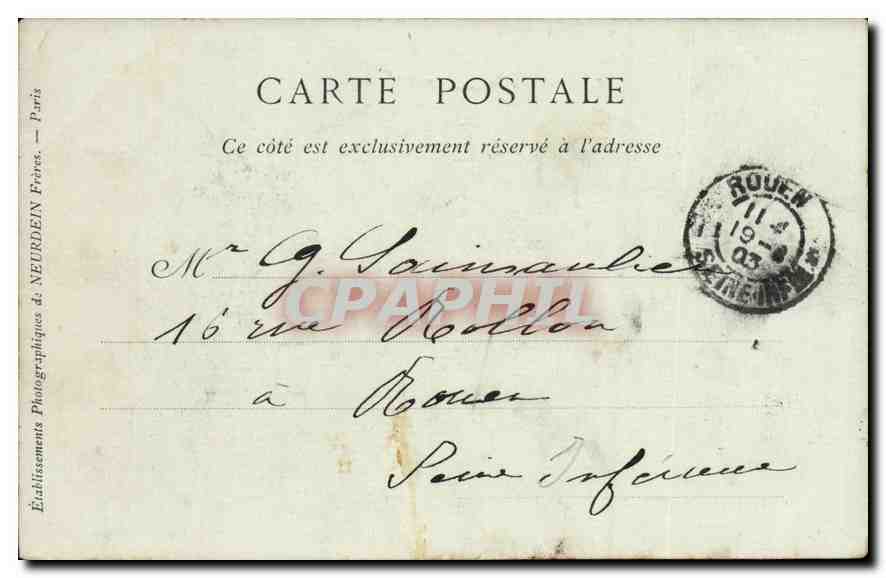 CARTE POSTALE
Ce côté est exclusivement réservé à l'adresse
Mr G. Sainsaulieu
16 rue Rollon
à Rouen
Seine Inférieure
ROUEN
11 4
19
03
SEINE-INFRE
CPAPHIL
Établissements Photographiques de NEURDEIN Frères. — Paris